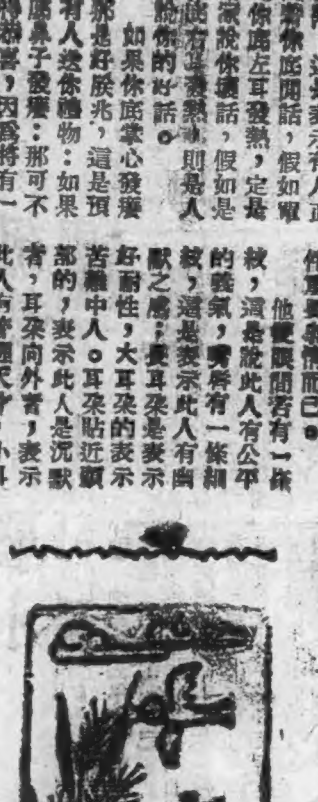 你底閒話，假如單
你底左耳發熱，定是
家說你壞話，假如是
熱，則是人
說你的好話。
如果你底掌心發癢
那是好朕兆，這是預
有人送你禮物：如果
底鼻子發癢：那可不
因爲將有一
件重要事情而已。
他雙眼間若有一條
紋，這是說此人有公平
的義氣，嘴唇有一條細
紋，這是表示此人有幽
默之感；長耳朵是表示
好耐性，大耳朵的表示
苦難中人。耳朵貼近頭
部的，表示此人是沉默
者，耳朵向外者，表示
此人有